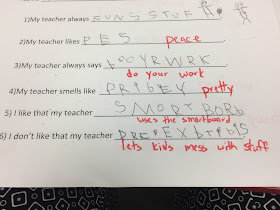 1)My teacher always FUNS STUF
2)My teacher likes PES peace
3)My teacher always says DOO YR WRK
do your work
4)My teacher smells like PRIDEY pretty
5) I like that my teacher SMORT BORD
uses the smartboard
6)I don't like that my teacher
lets kids mess with stuff